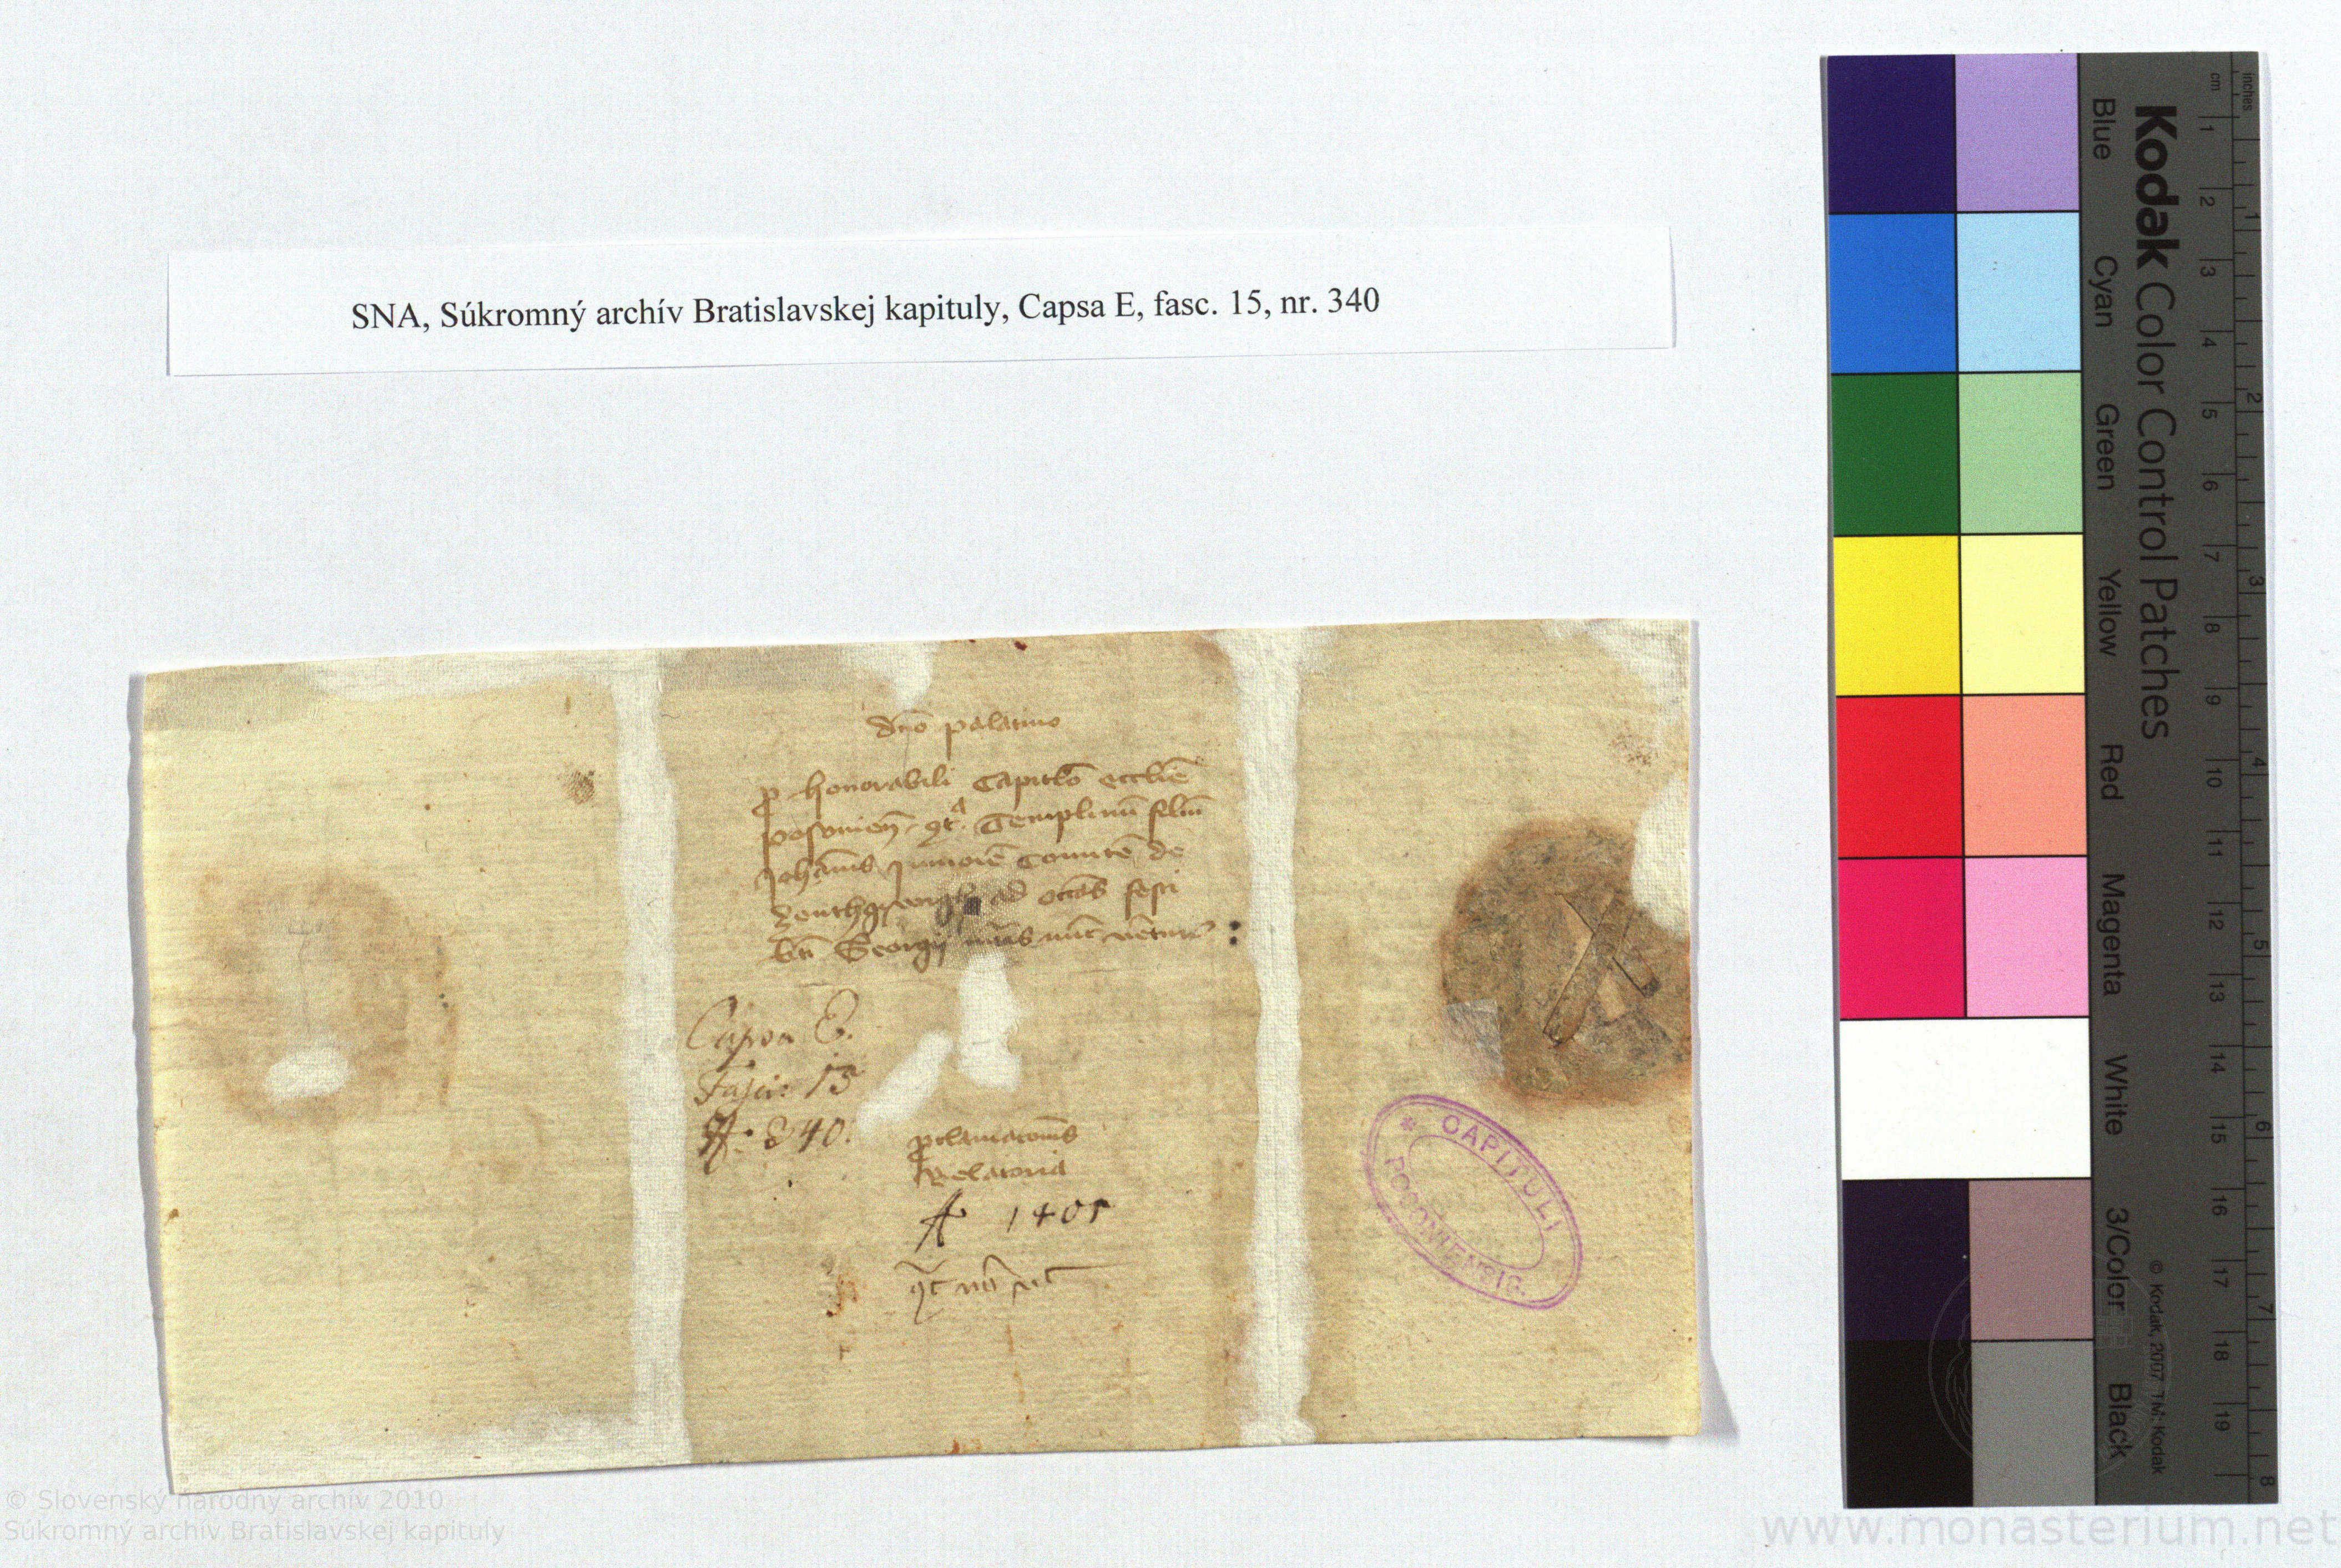 SNA, Súkromný archív Bratislavskej kapituly, Capsa E, fasc. 15, nr. 340
dn̄o palatino
ꝓ honorabili Capitl̄o eccl̄ie
Posonien̄ Templinū filiū
Joh̄anis Juniorē Comitē de
ad octas̄ festi
bt̄i Georgy nūc
Capsa E.
Fasci: 15
N: 340.
ꝓclamacōnis
Relatoria
A 1401
* CAPITULI
POSONIENSIS.
Kodak Color Control Patches
Blue Cyan Green Yellow Red Magenta White 3/Color Black
cm 1 2 3 4 5 6 7 8 9 10 11 12 13 14 15 16 17 18 19
inches 1 2 3 4 5 6 7 8
© Kodak, 2007 TM: Kodak
© Slovenský národný archív 2010
Súkromný archív Bratislavskej kapituly
www.monasterium.net